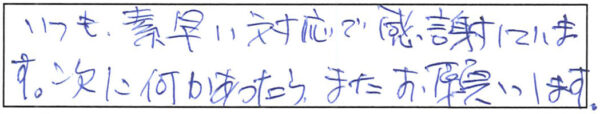 いつも、素早い対応で感謝していま
す。次に何かあったら、またお願いします。